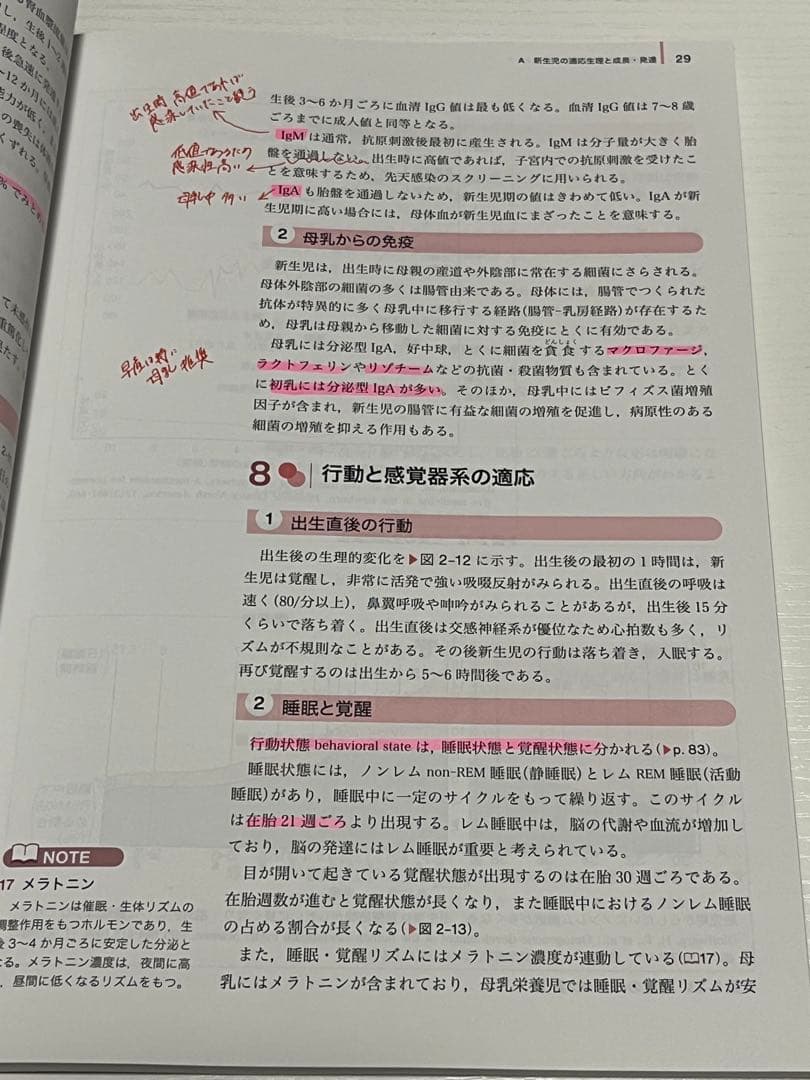 A 新生児の適応生理と成長・発達 29
生後3〜6か月ごろに血清IgG値は最も低くなる。血清IgG値は7〜8歳
ごろまでに成人値と同等となる。
IgMは通常，抗原刺激後最初に産生される。IgMは分子量が大きく胎
盤を通過しない。出生時に高値であれば，子宮内での抗原刺激を受けたこ
とを意味するため，先天感染のスクリーニングに用いられる。
IgAも胎盤を通過しないため，新生児期の値はきわめて低い。IgAが新
生児期に高い場合には，母体血が新生児血にまざったことを意味する。
出生時 高値であれば
感染していたこと疑う
低値であるため
感染性高い
母乳中 多い
2 母乳からの免疫
新生児は，出生時に母親の産道や外陰部に常在する細菌にさらされる。
母体外陰部の細菌の多くは腸管由来である。母体には，腸管でつくられた
抗体が特異的に多く母乳中に移行する経路(腸管-乳房経路)が存在するた
め，母乳は母親から移動した細菌に対する免疫にとくに有効である。
母乳には分泌型IgA，好中球，とくに細菌を貪食するマクロファージ，
どんしょく
ラクトフェリンやリゾチームなどの抗菌・殺菌物質も含まれている。とく
に初乳には分泌型IgAが多い。そのほか，母乳中にはビフィズス菌増殖
因子が含まれ，新生児の腸管に有益な細菌の増殖を促進し，病原性のある
細菌の増殖を抑える作用もある。
母乳 推奨
8 行動と感覚器系の適応
1 出生直後の行動
出生後の生理的変化を▶図2-12に示す。出生後の最初の1時間は，新
生児は覚醒し，非常に活発で強い吸啜反射がみられる。出生直後の呼吸は
速く(80/分以上)，鼻翼呼吸や呻吟がみられることがあるが，出生後15分
くらいで落ち着く。出生直後は交感神経系が優位なため心拍数も多く，リ
ズムが不規則なことがある。その後新生児の行動は落ち着き，入眠する。
再び覚醒するのは出生から5〜6時間後である。
2 睡眠と覚醒
行動状態 behavioral state は，睡眠状態と覚醒状態に分かれる(▶p. 83)。
睡眠状態には，ノンレム non-REM 睡眠(静睡眠)とレム REM 睡眠(活動
睡眠)があり，睡眠中に一定のサイクルをもって繰り返す。このサイクル
は在胎21週ごろより出現する。レム睡眠中は，脳の代謝や血流が増加し
ており，脳の発達にはレム睡眠が重要と考えられている。
目が開いて起きている覚醒状態が出現するのは在胎30週ごろである。
在胎週数が進むと覚醒状態が長くなり，また睡眠中におけるノンレム睡眠
の占める割合が長くなる(▶図2-13)。
また，睡眠・覚醒リズムにはメラトニン濃度が連動している(17)。母
乳にはメラトニンが含まれており，母乳栄養児では睡眠・覚醒リズムが安
NOTE
17 メラトニン
メラトニンは催眠・生体リズムの
調整作用をもつホルモンであり，生
後3〜4か月ごろに安定した分泌と
なる。メラトニン濃度は，夜間に高
，昼間に低くなるリズムをもつ。